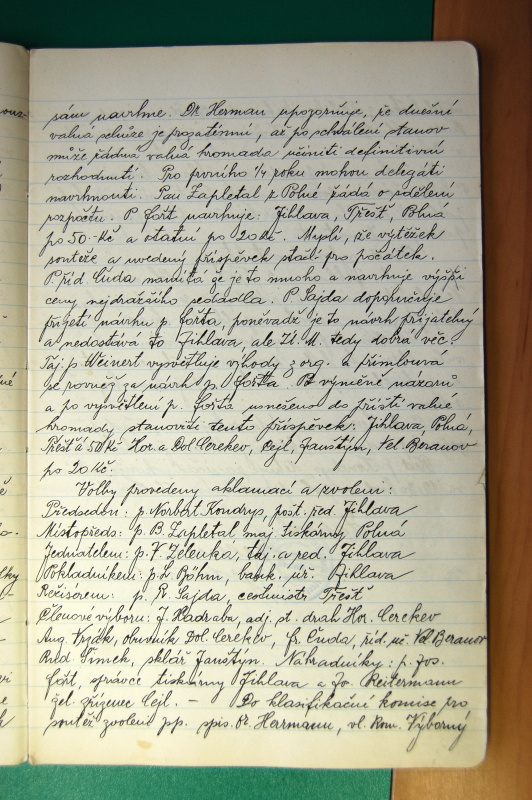 sám navrhne. Dr. Herman upozorňuje, že dnešní
valná schůze je prozatimní, až po schválení stanov
může řádná valná hromada učiniti definitivní
rozhodnutí. Pro prvního 1/4 roku mohou delegáti
navrhnouti. Pan Zapletal z Polné žádá o sdělení
rozpočtu. P. Fořt navrhuje: Jihlava, Třešť, Polná
po 50.-Kč a ostatní po 20 Kč. Myslí, že výtěžek
soutěže a uvedený příspěvek stačí pro počátek.
P. říd. Čuda namítá že je to mnoho a navrhuje výši
ceny nejdražšího sedadla. P. Sajda doporučuje
přijetí návrhu p. Fořta, poněvadž je to návrh přijatelný
a nedostává to Jihlava, ale Ú. M. tedy dobrá věc.
Taj. p. Weinert vysvětluje výhody z org. a přimlouvá
se rovněž za návrh p. Fořta. Po výměně názorů
a po vysvětlení p. Fořta usneseno do příští valné
hromady stanoviti tento příspěvek: Jihlava, Polná,
Třešť á 50 Kč Hor. a Dol. Cerekev, Cejl, Janštýn, Vel. Beranov
po 20 Kč.
Volby provedeny aklamací a zvoleni:
Předsedou: p. Norbert Kondrys, post. řed. Jihlava
Místopředs: p. B. Zapletal, maj. tiskárny Polná
Jednatelem: p. V. Zelenka, taj. a red. Jihlava
Pokladníkem: p. L. Böhm, bank. úř. Jihlava
Režisérem: p. R. Sajda, cestmistr Třešť
Členové výboru: J. Hadraba, adj. st. drah Hor. Cerekev
Aug. obuvník Dol. Cerekev, Fr. Čuda, říd. uč. Vel. Beranov
Rud. Šimek, sklář Janštýn. Náhradníky: p. Jos.
Fořt, správce tiskárny Jihlava a Jo. Reitermann
žel. zřízenec Cejl. — Do klasifikační komise pro
soutěž zvoleni pp. spis. Dr. Hermann, vl. kom. Výborný